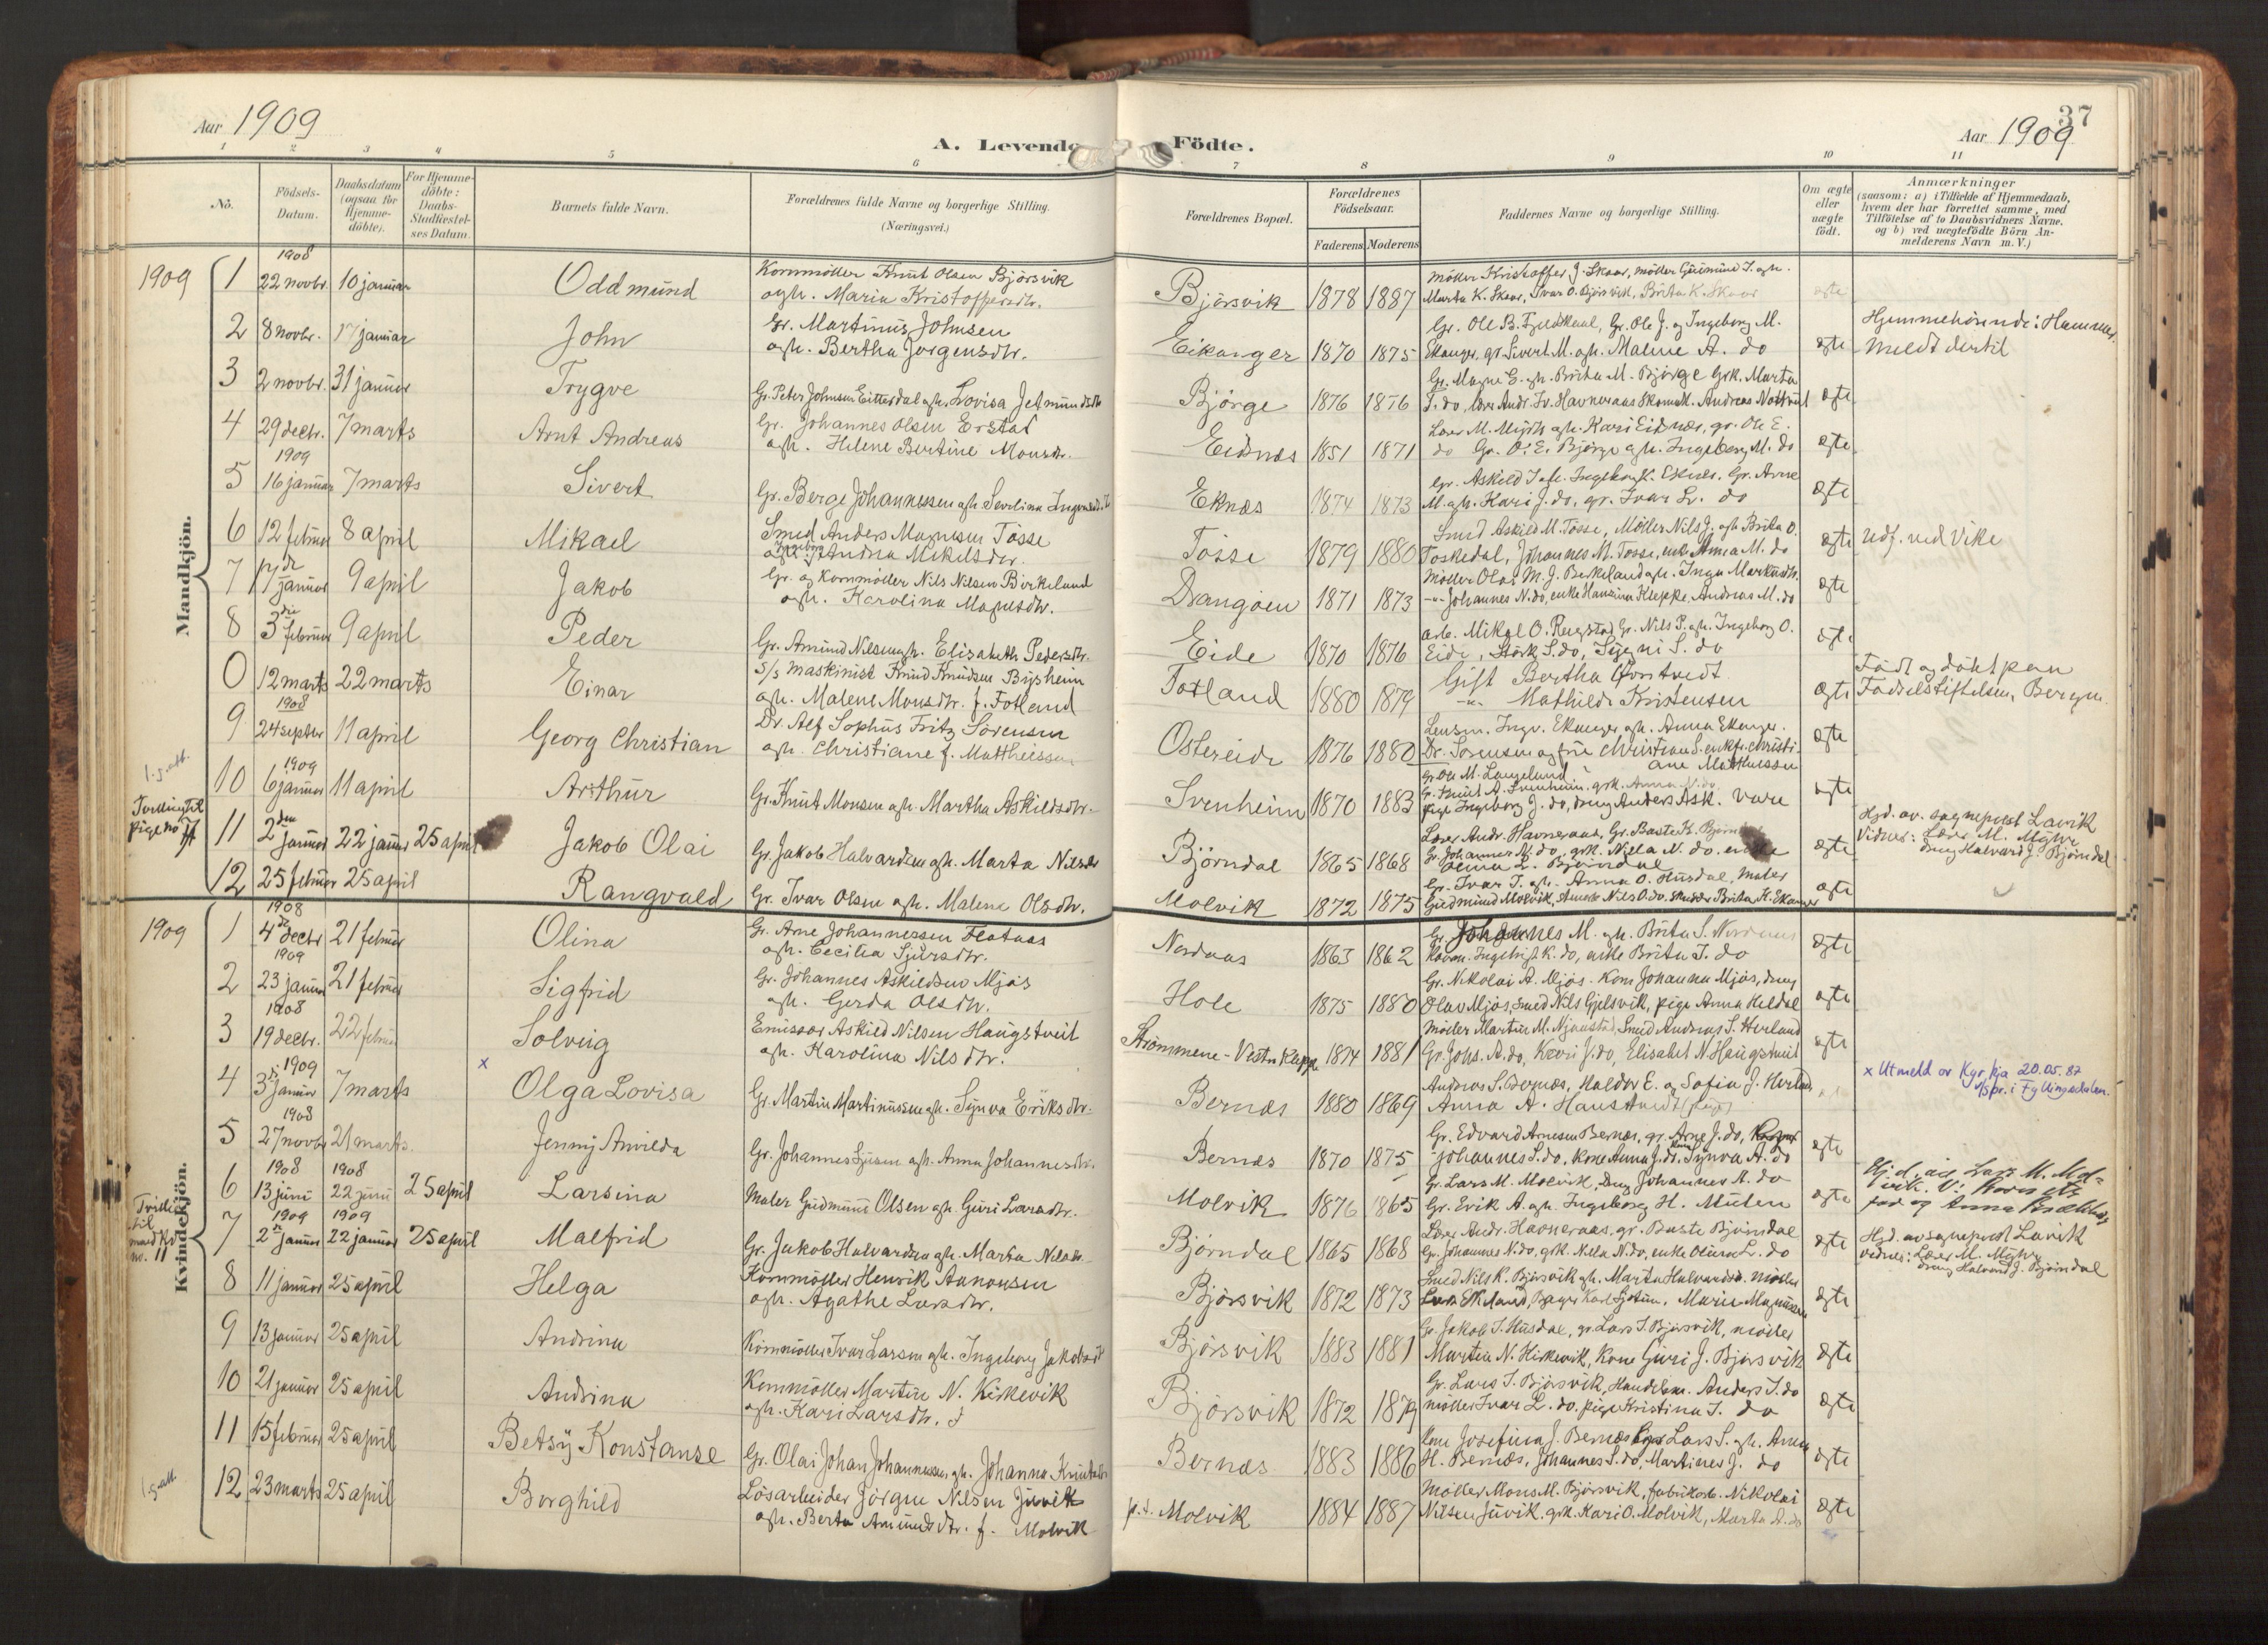 37
Aar 1909
A. Levende Födte.
Aar 1909
1 2 3 4 5 6 7 8 9 10 11
No.
Födsels-Datum.
Daabsdatum (ogsaa for Hjemme-döbte).
For Hjemme-döbte: Daabs-Stadfæstel-ses Datum.
Barnets fulde Navn.
Forældrenes fulde Navne og borgerlige Stilling. (Næringsvei.)
Forældrenes Bopæl.
Forældrenes Födselsaar.
Faderens Moderens
Faddernes Navne og borgerlige Stilling.
Om ægte eller uægte födt.
Anmærkninger
(saasom: a) i Tilfælde af Hjemmedaab, hvem der har forrettet samme, med Tilföielse af to Daabsvidners Navne, og b) ved uægtefödte Börn An-melderens Navn m. V.)
Mandkjön.
1909
1908
1 22 novbr. 10 januar Oddmund Kornmöller Knut Olsen Björsvik
ogh. Maria Kristoffersdtr. Björsvik 1878 1887 Möller Kristoffer J. Skaar, möller Gudmund
Marta K. Skaar, Ivar O. Björsvik, Brita K. Skaar ægte
2 8 novbr. 17 januar John Gr. Martinus Johnsen
ogh. Bertha Jörgensdtr. Eikanger 1870 1875 Gr. Ole B. Gr. Ole J. og Ingeborg M.
Ekanger, gr. Sivert M. ogh. Malene A. do ægte Hjemmehörende i Hammer.
Meldt dertil
3 2 novbr. 31 januar Trygve Gr. Peter Johnsen ogh. Lovisa Björge 1876 1876 Gr. Magne E. ogh. Brita M. Björge Grk. Marta
do, lærer Andr. Havneraas Andreas ægte
4 29 decbr. 7 marts Arnt Andreas Gr. Johannes Olsen Erstad
ogh. Helene Bertine Monsdtr. Eidnes 1851 1871 Lærer M. Mjös ogh. Kari Eidnes, gr. Ole E.
do Gr. O. E. Björge ogh. Ingeborg M. do ægte
1909
5 16 januar 7 marts Sivert Gr. Berge Johannessen ogh. Severina Eknæs 1874 1873 Gr. Askild ogh. Ingeborg K. Eknes. Gr. Arne
M. ogh. Kari J. do, gr. Ivar L. do ægte
6 12 februar 8 april Mikael Smed Anders Magnesen Tösse
ogh. Andrea Mikelsdtr. Tösse 1879 1880 Smed Askild M. Tösse, Möller Nils J. ogh. Brita O.
Toskedal, Johannes M. Tosse, enke Anna M. do ægte Udf. ved Vike
7 17de januar 9 april Jakob Gr. og Kornmöller Nils Nilsen Birkeland
ogh. Karolina Magnusdtr. Drangöen 1871 1873 Möller Olai M. J. Berkeland ogh. Inga
Johannes N. do, enke Hanzina Kleppe, Andreas M. do ægte
8 3die februar 9 april Peder Gr. Amund Nilsen ogh. Elisabeth Pedersdtr. Eide 1870 1876 arb. Mikal O. Gr. Nils P. ogh. Ingeborg O.
Eide, Störk S. do, S. do
0 12 marts 22 marts Einar S/s Maskinist Knud Knudsen Bysheim
ogh. Malene Monsdtr. f. Fotland Fotland 1880 1879 Gift Bertha
Mathilde Kristensen ægte Födt og döbt paa
Födselsstiftelsen, Bergen.
1908
9 24 septbr 11 april Georg Christian Dr. Alf Sophus Fritz Sörensen
ogh. Christiane f. Mattheissen Ostereide 1876 1880 Lensm. Ingv. Ekanger ogh. Anna Ekanger.
Dr. Sörensen og frue Christiane S. enkefr. Christi-
ane Mattheissen ægte
1909
10 6 januar 11 april Arthur Gr. Knut Monsen ogh. Martha Askildsdtr. Svenheim 1870 1883 gr. Ole M. Langeland
Gr. Knut A. Svenheim, grk. Anna
pige Ingeborg J. do, dreng Anders Ask. ægte
Tvilling til
pige no 7
11 2den januar 22 januar 25 april Jakob Olai Gr. Jakob Halvardsen ogh. Marta Nilsdtr Björndal 1865 1868 Lærer Andr. Havneraas, Gr. Baste K.
Gr. Johannes N. do, grk. Nsela N. do. enke
Olina L. Björndal ægte Hjd. av. sognepræst Lavik
Vidner: Lærer M. Mjös
dreng Halvard J. Björndal
12 25 februar 25 april Rangvald Gr. Ivar Olsen ogh. Malena Olsdtr. Molvik 1872 1875 Gr. Ivar T. ogh. Anna O. Husdal, Maler
Gudmund Molvik, Nils O. do. Brita K. Ekanger ægte
Kvindekjön.
1909
1908
1 4de decbr 21 februar Olina Gr. Arne Johannessen Flotnes
ogh. Cecilia Sjursdtr. Nordaas 1863 1862 Gr. Johannes M. ogh. Brita S. Nordaas
Ingebrigt K. do, enke Brita J. do ægte
1909
2 23 januar 21 februar Sigfrid Gr. Johannes Askildsen Mjös
ogh. Gerda Olsdtr. Hole 1875 1880 Gr. Nikolai A. Mjös. Kone Johanna Mjös, dreng
Olav Mjös, Smed Nils Gjelsvik, pige Anna Keldal ægte
1908
3 19 decbr. 22 februar Solveig Emissær Askild Nilsen Haugstveit
ogh. Karolina Nilsdtr. Strømmene - Vestre Kleppe 1874 1881 Möller Martin M. Smed Andreas S. Herland
Gr. Johs. A. do, Kari J. do, Elisabet N. Haugstveit ægte
1909
x
4 3de januar 7 marts Olga Lovisa Gr. Martin Martinussen ogh. Synva Eriksdtr. Bernæs 1880 1869 Andreas S. Bernæs, Haldor E. og Sofia J. Herland
Anna A. (pige) x Utmeld av Kyrkja 20.05.87
Fyllingsdalen.
1908
5 27 novbr 21 marts. Jenny Amilda Gr. Johannes Sjursen ogh. Anna Johannesdtr. Bernæs 1870 1875 Gr. Edvard Arnesen Bernæs, gr. Arne J. do,
Johannes S. do, Kone Anna J. do, Synva A. do ægte
1908 1908
6 13 juni 22 juni 25 april Larsina Maler Gudmund Olsen ogh. Guri Larsdtr. Molvik 1876 1865 Gr. Lars M. Molvik, Dreng Johannes A. do
Gr. Erik A. ogh. Ingeborg H. Mülen ægte Hjd. av Lars M. Mol-
vik.
Tvilling
til
mandkj.
no. 11
1909 1909
7 2den januar 22 januar 25 april Malfrid Gr. Jakob Halvardsen ogh. Marta Nilsdtr. Björndal 1865 1868 Lærer Andr. Havneraas. gr. Baste Björndal
Gr. Johannes N. do, grk. Nsela N. do, enke Olina L. do ægte Hjd. av sognepræst Lavik
vidner: Lærer M. Mjös
dreng Halvard J. Björndal
8 11 januar 25 april Helga Kornmöller Henrik Aanonsen
ogh. Agathe Larsdtr. Björsvik 1872 1873 Smed Nils K. Björsvik ogh. Marta Halvardsd. Möller
Lars Ekeland, Bager Karl Marie Magnussen ægte
9 13 januar 25 april Andrina Kornmöller Ivar Larsen ogh. Ingeborg Jakobsdtr Björsvik 1883 1881 Gr. Jakob J. Husdal, gr. Lars J. Björsvik, Möller
Martin N. Kirkevik, Kone Guri J. Björsvik ægte
10 21 januar 25 april Andrina Kornmöller Martin N. Kirkevik
ogh. Kari Larsdtr. Björsvik 1872 1879 Gr. Lars J. Björsvik, Handelsm. Anders J. do
möller Ivar L. do. pige Kristina J. do ægte
11 15 februar 25 april Betsy Konstanse Gr. Olai Johan Johannessen ogh. Johanna Knutsdtr Bernæs 1883 1886 Kone Josefina J. Bernæs Lars S. ogh. Anna
H. Bernæs, Johannes S. do, Martines J. do ægte
12 23 marts 25 april Borghild Lösarbeider Jörgen Nilsen Juvik
ogh. Berta Amundsdtr. f. Molvik p.t. Molvik 1884 1887 Möller Mons M. Björsvik, fabrikarb. Nikolai
Nilsen Juvik. grk. Kari O. Molvik, Marta A. do ægte